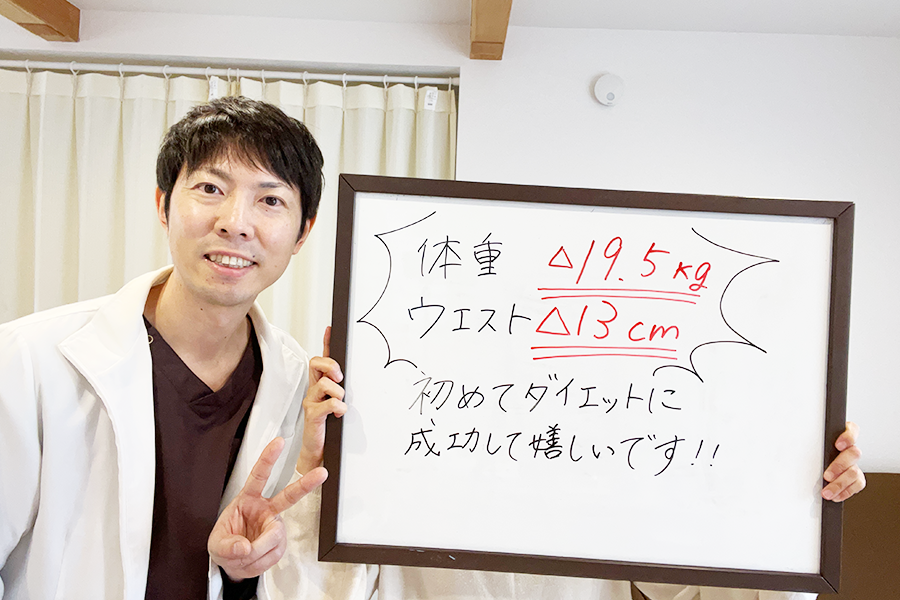 体重 △19.5kg
ウエスト△13cm
初めてダイエットに
成功して嬉しいです!!